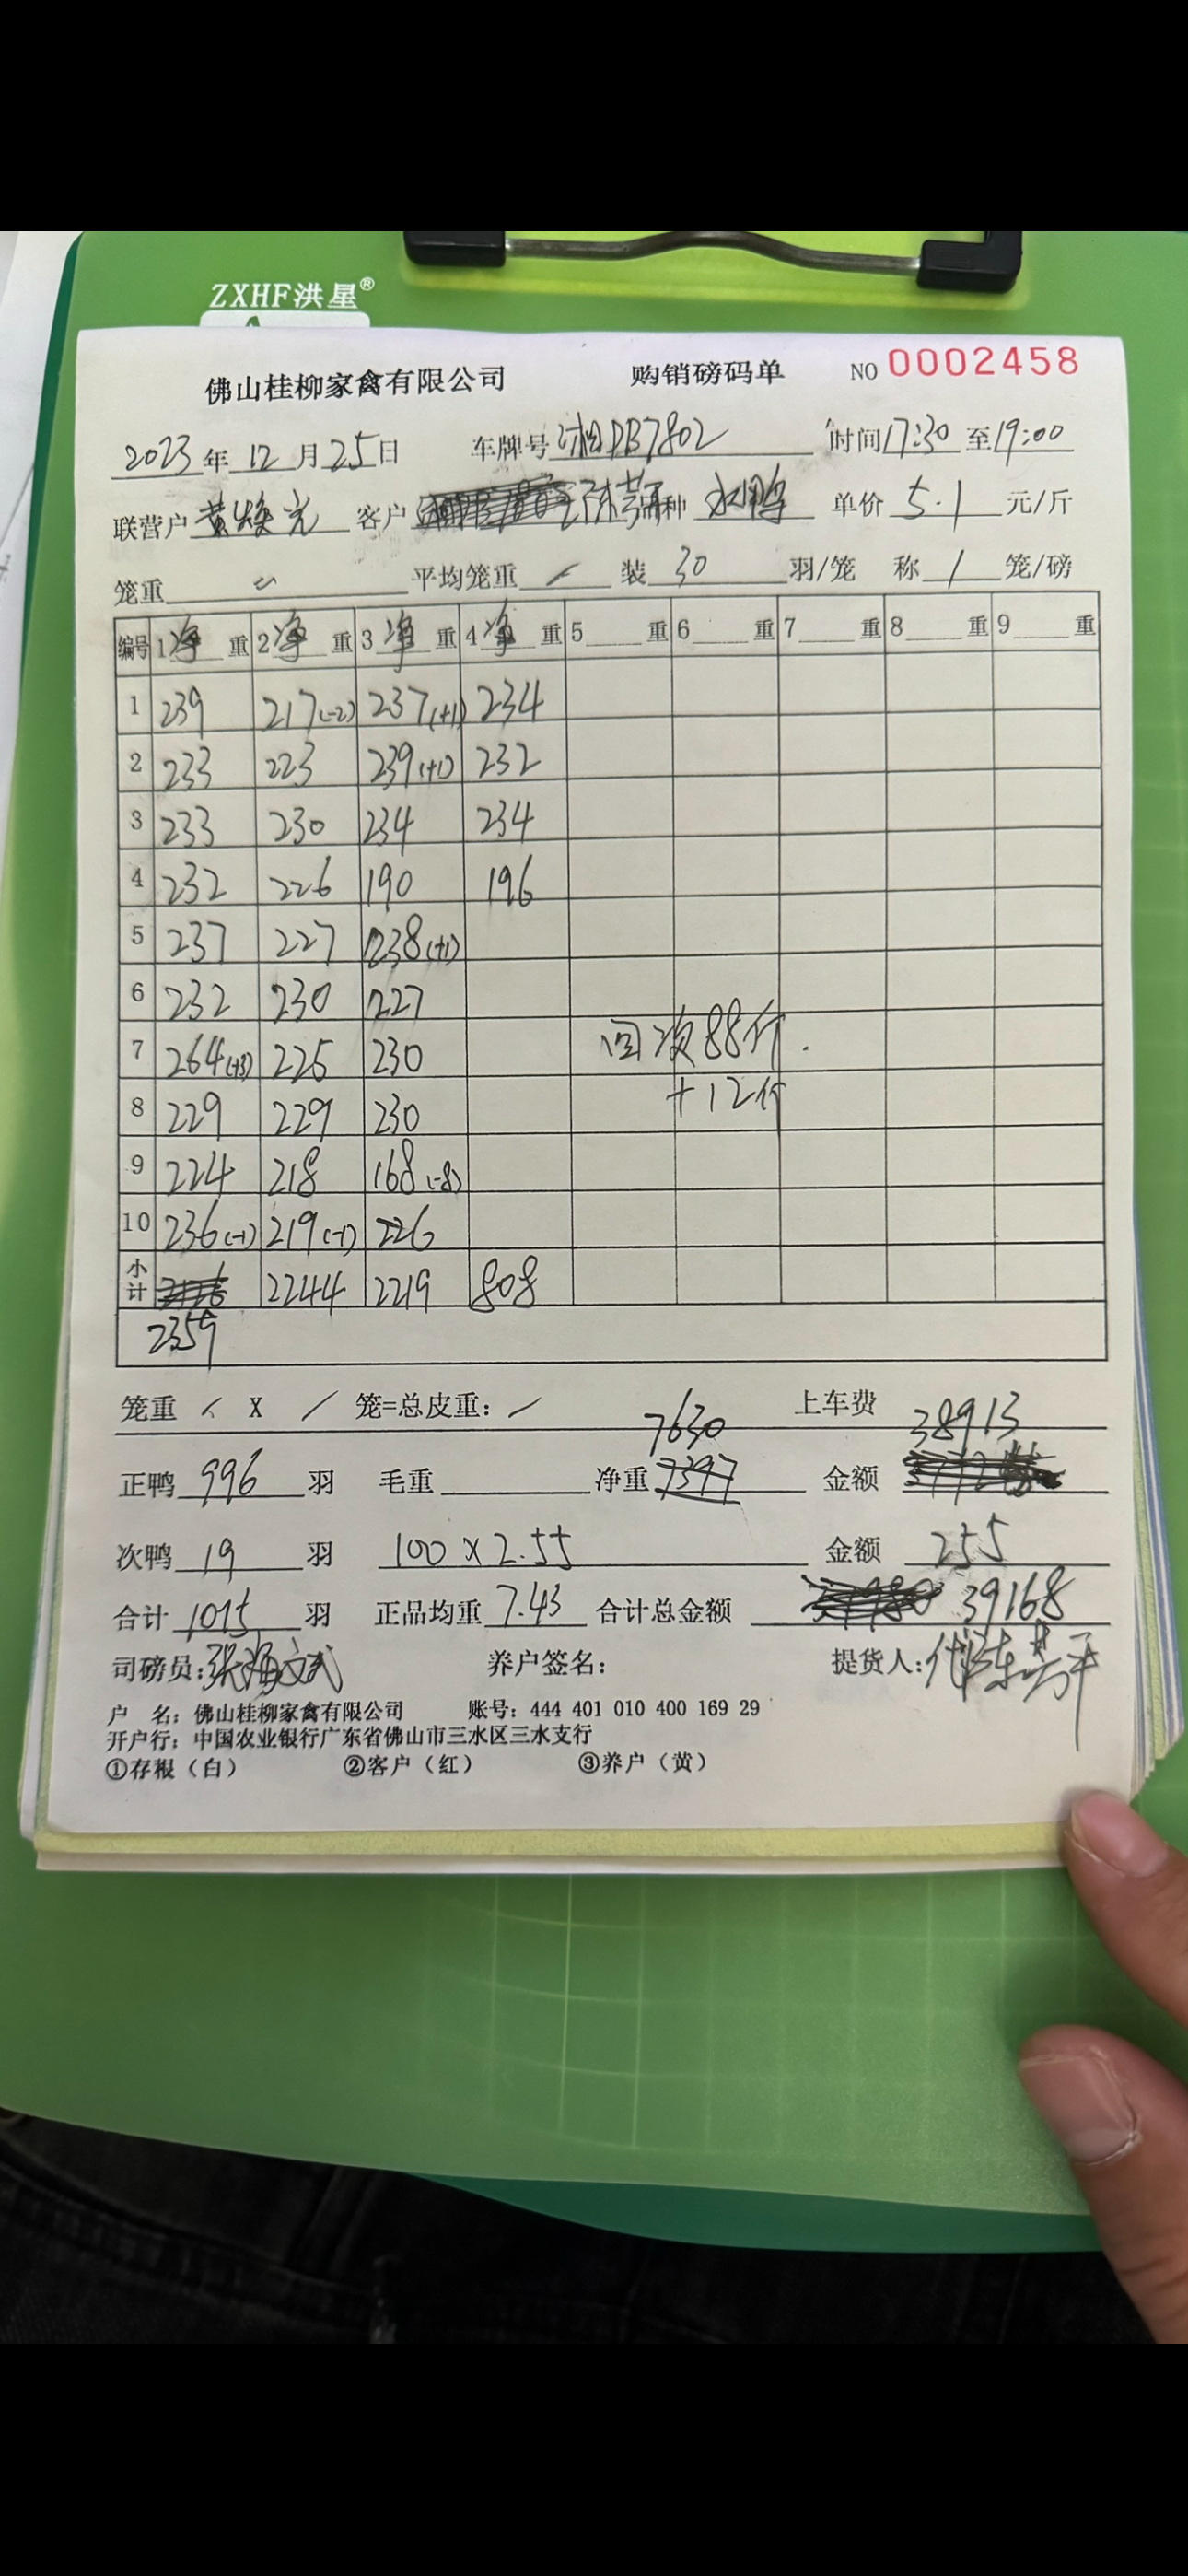 ZXHF洪星®
佛山桂柳家禽有限公司 购销磅码单 NO 0002458
2023年12月25日 车牌号 湘DB7802 时间17:30至19:00
联营户 黄焕光 客户 种 水鸭 单价 5.1 元/斤
笼重 平均笼重 / 装 30 羽/笼 称 1 笼/磅
编号 1净重 2净重 3净重 4净重 5 重 6 重 7 重 8 重 9 重
1 239 217(-2) 237(+1) 234
2 233 223 239(+1) 232
3 233 230 234 234
4 232 226 190 196
5 237 227 238(+1)
6 232 230 227
7 264(+3) 225 230
回次88斤.
8 229 229 230
+12斤
9 224 218 168(-8)
10 236(-1) 219(-1) 226
小计 2244 2219 808
2359
笼重 / X / 笼=总皮重: / 上车费
7630 38913
正鸭 996 羽 毛重 净重 7397 金额
次鸭 19 羽 100×2.55 金额 255
合计 1015 羽 正品均重 7.43 合计总金额 39168
司磅员:张海文 养户签名: 提货人:代陈
户 名: 佛山桂柳家禽有限公司 账号: 444 401 010 400 169 29
开户行: 中国农业银行广东省佛山市三水区三水支行
①存根（白） ②客户（红） ③养户（黄）